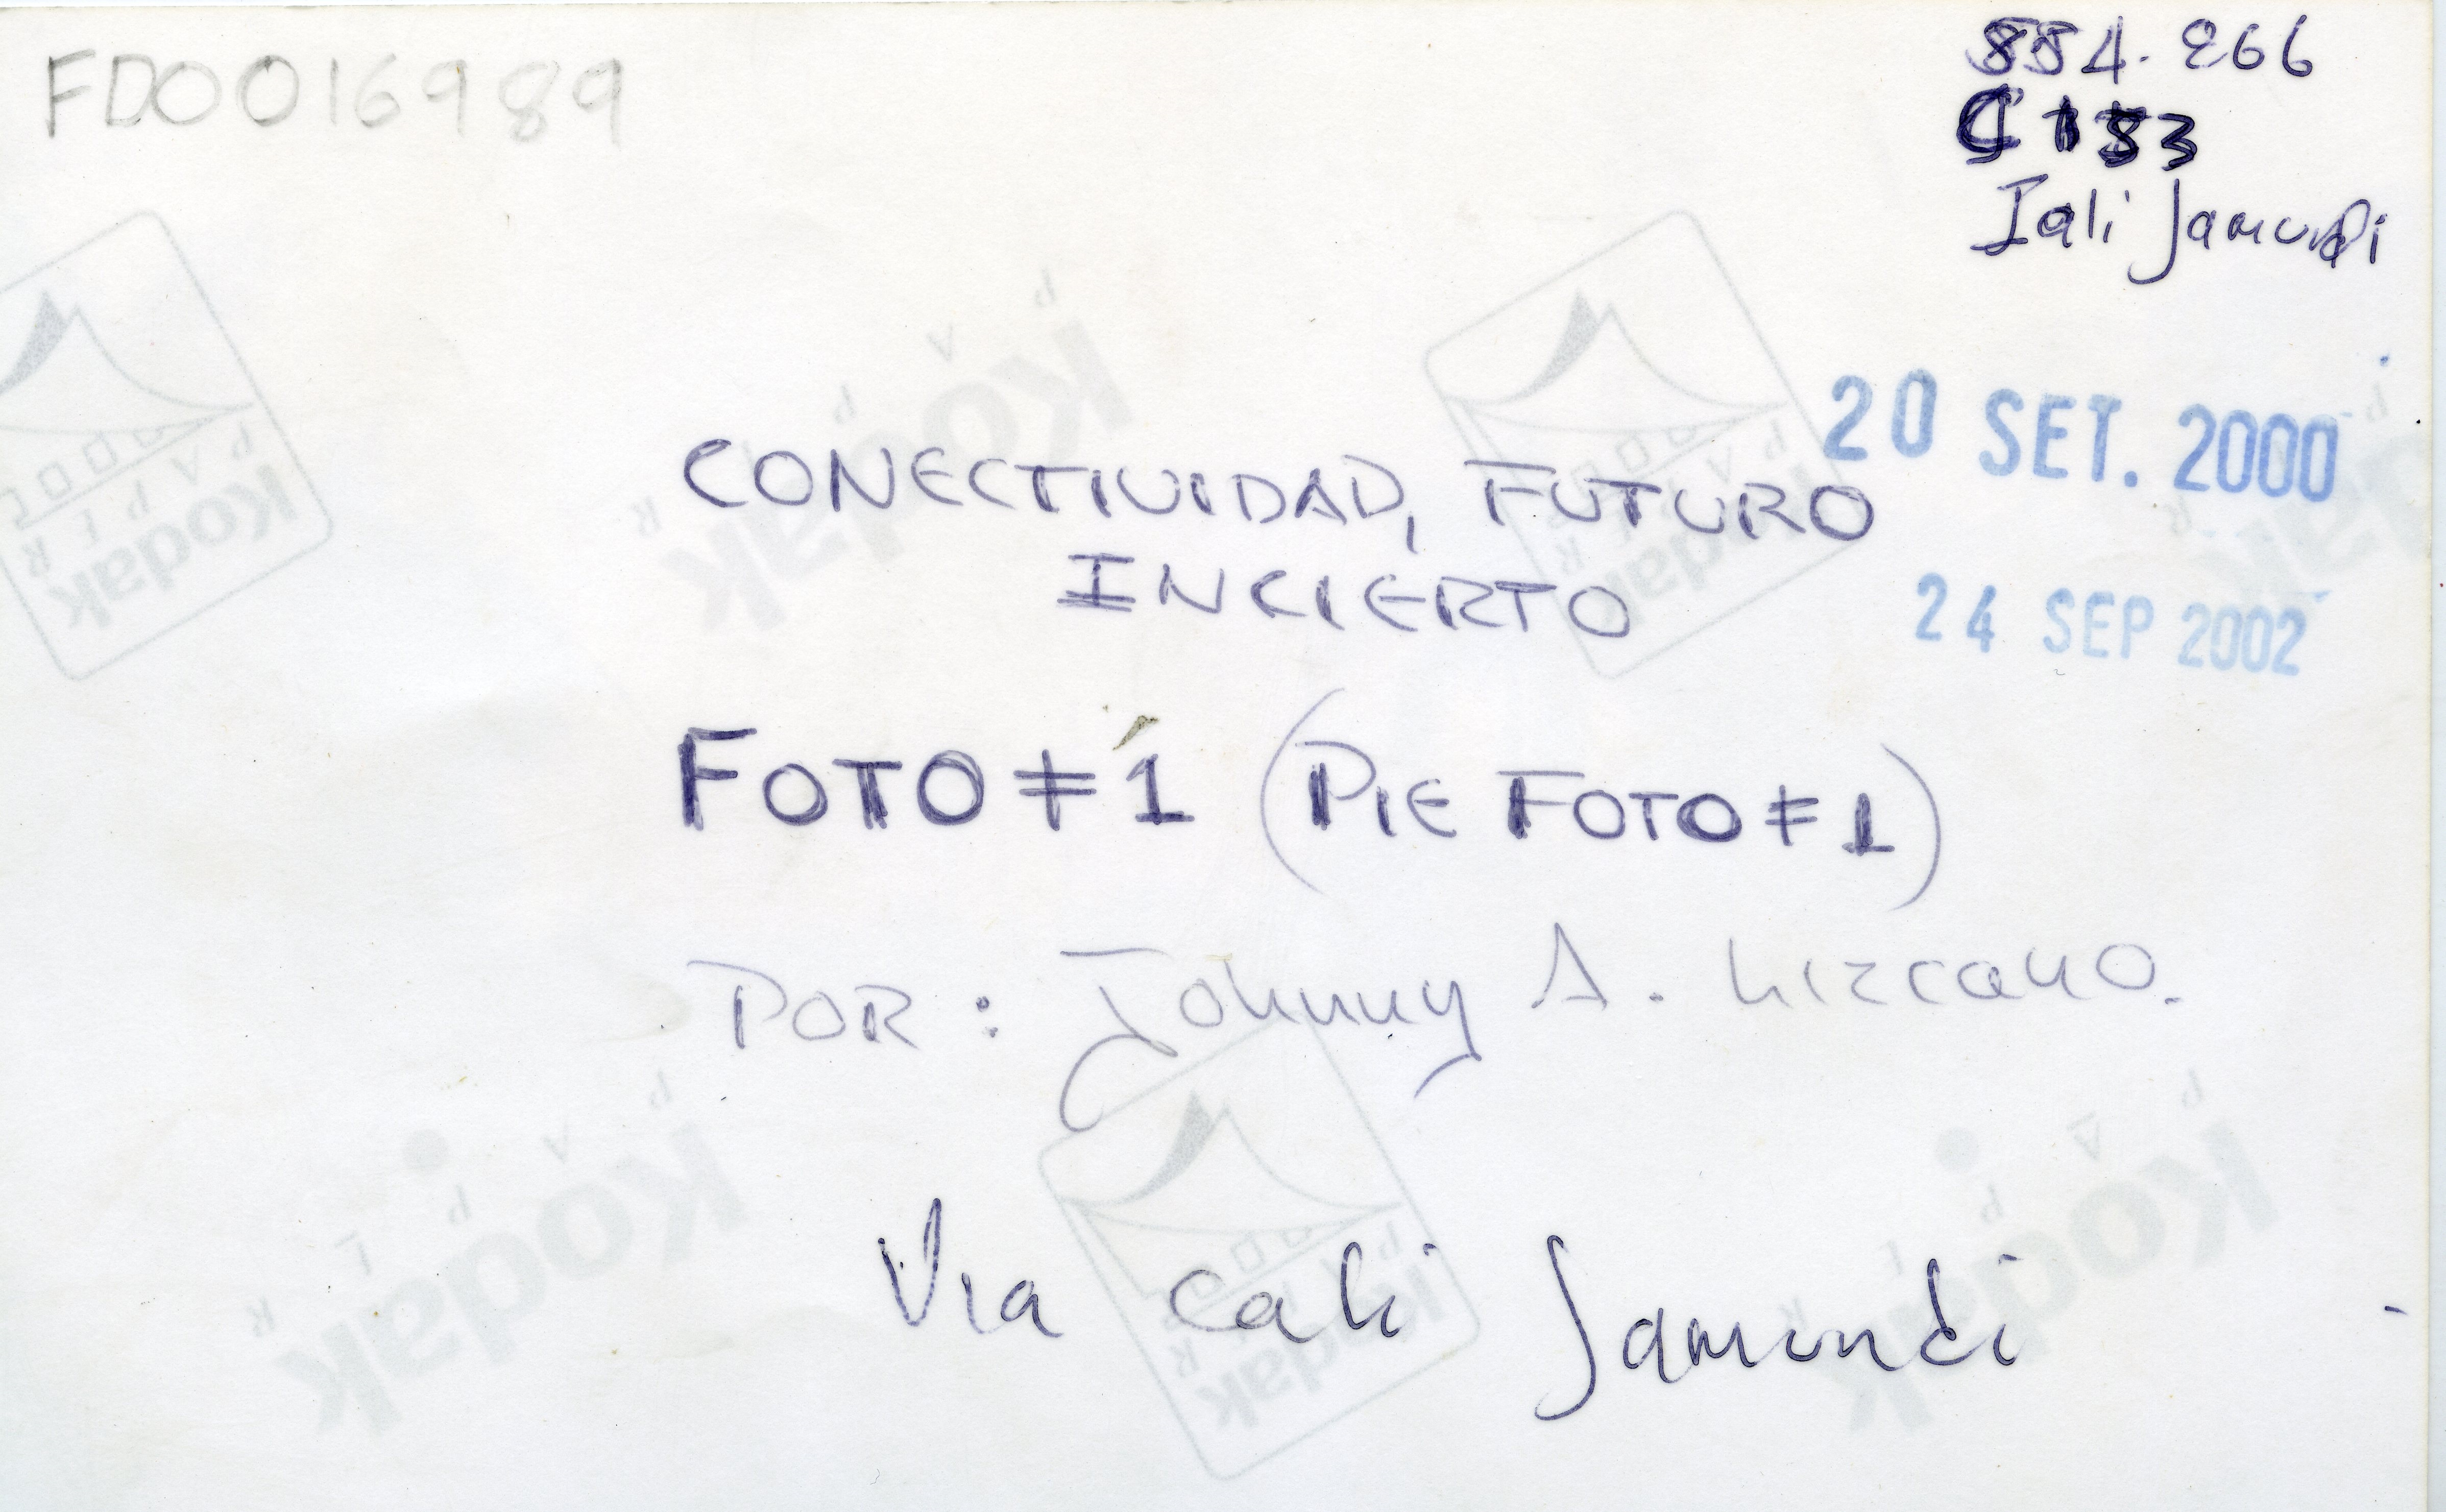 FD0016989
884.266
C 183
Cali Jamundi
20 SET. 2000
CONECTIVIDAD, FUTURO
INCIERTO
24 SEP 2002
FOTO #1 (PIE FOTO #1)
POR: Johnny A. Lizcano.
Via Cali Jamundi
Kodak
PAPER
Kodak
PAPER
Kodak
PAPER
Kodak
PAPER
Kodak
PAPER
Kodak
PAPER
Kodak
PAPER